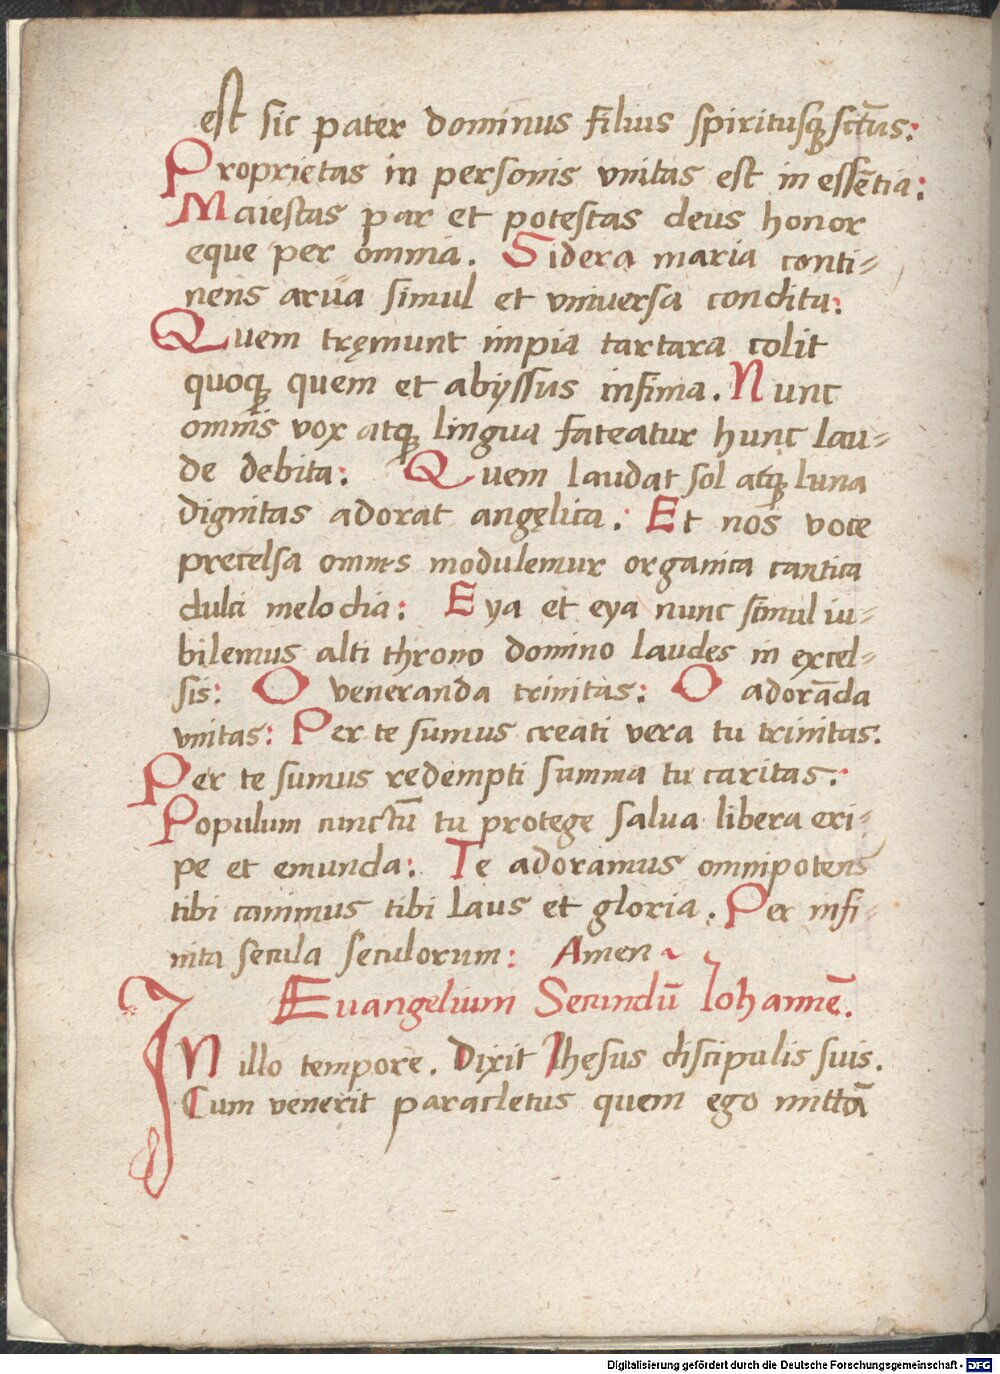 est sic pater dominus filius spiritusqꝫ sctũs:
Proprietas in personis vnitas est in essẽtia:
Maiestas par et potestas deus honor
eque per omnia. Sidera maria conti-
nens arua simul et vniuersa condita:
Quem tręmunt impia tartara colit
quoqꝫ quem et abyssus infima. Nunc
omnis vox atqꝫ lingua fateatur hunc lau-
de debita: Quem laudat sol atqꝫ luna
dignitas adorat angęlica: Et nos voce
precelsa omnes modulemur organica cantica
dulci melodia: Eya et eya nunc simul iu-
bilemus alti throno domino laudes in excel-
sis: O veneranda trinitas: O adorãda
vnitas: Per te sumus creati vera tu trinitas.
Per te sumus redempti summa tu caritas:
Populum cunctũ tu protege salua libera eri-
pe et emunda: Te adoramus omnipotens
tibi canimus tibi laus et gloria. Per infi-
nita secula seculorum: Amen
Euangelium Secundũ Iohannẽ.
IN illo tempore. Dixit Ihesus discipulis suis.
Cum venerit paracletus quem ego mittã
Digitalisierung gefördert durch die Deutsche Forschungsgemeinschaft - DFG